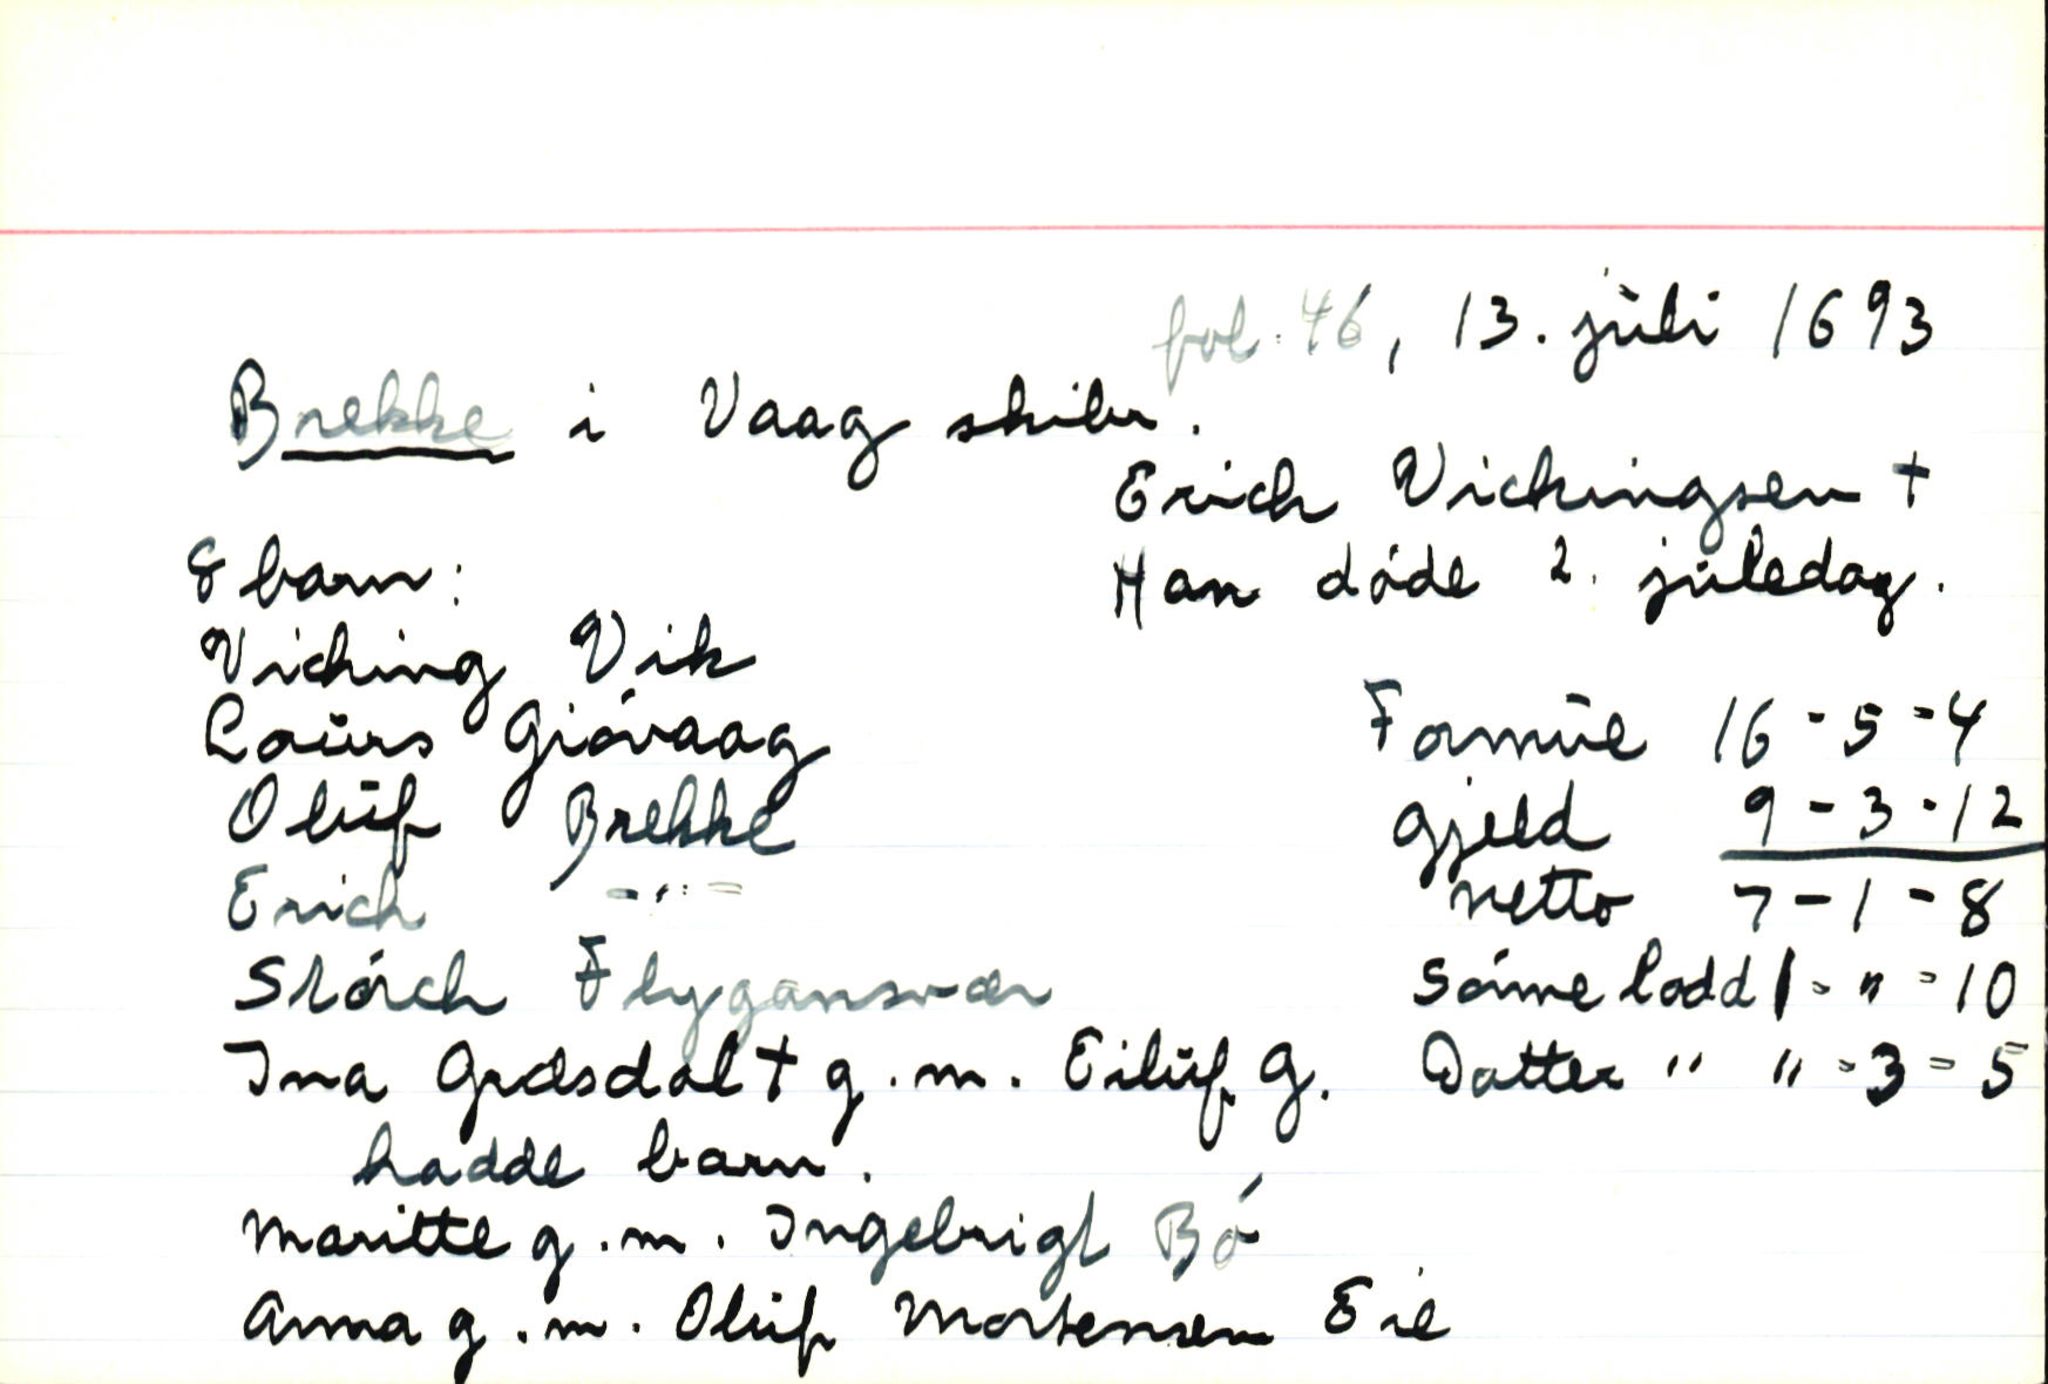 fol. 46, 13. jŭli 1693
Brekke i Vaag skibr.
Erich Vichingsen †
Han døde 2. jŭledag.
8 barn:
Viching Vik
Laŭrs Giøvaag
Olŭf Brekke
Erich -"-
Størch Flygansvær
Ina Grøsdal † g.m. Eilŭf G.
hadde barn.
Maritte g.m. Ingebrigt Bø
Anna g.m. Olŭf Mortensen Eie
Formŭe 16-5-4
gjeld 9-3-12
netto 7-1-8
Sønne lodd 1-"-10
Datter " "-3-5